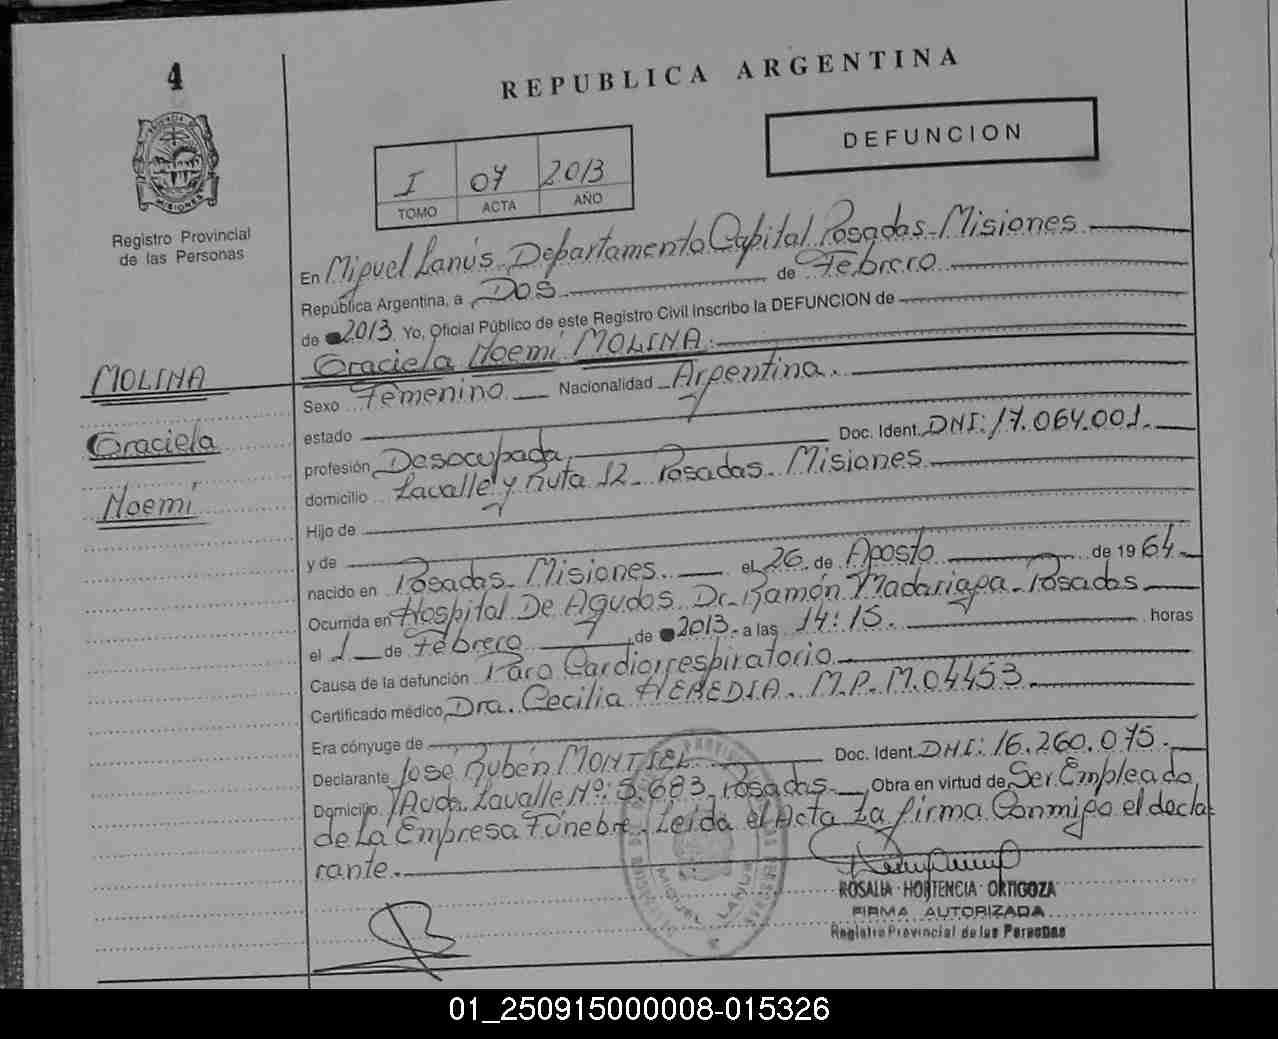 4
REPUBLICA ARGENTINA
DEFUNCION
I 07 2013
TOMO ACTA AÑO
Registro Provincial
de las Personas
En Miguel Lanús Departamento Capital Posadas-Misiones
República Argentina, a Dos de Febrero
de 2013 Yo, Oficial Público de este Registro Civil inscribo la DEFUNCION de
Graciela Noemí MOLINA.
MOLINA
Graciela
Noemí
Sexo Femenino Nacionalidad Argentina.
estado Doc. Ident. DNI: 17.064.001.
profesión Desocupada
domicilio Lavalle y Ruta 12 - Posadas - Misiones
Hijo de
y de
nacido en Posadas - Misiones. el 26 de Agosto de 1964
Ocurrida en Hospital De Agudos Dr. Ramón Madariaga - Posadas
el 1 de Febrero de 2013 - a las 14:15. horas
Causa de la defunción Paro Cardiorrespiratorio
Certificado médico Dra. Cecilia HEREDIA. M.P. M.04453
Era cónyuge de
Declarante José Rubén MONTIEL. Doc. Ident. DNI: 16.260.075.
Domicilio Avda. Lavalle Nº: 5.683 Posadas. Obra en virtud de Ser Empleado
de La Empresa Fúnebre. Leída el Acta La firma Conmigo el decla
rante.
MIGUEL LANUS
ROSALIA HORTENCIA ORTIGOZA
FIRMA AUTORIZADA
Registro Provincial de las Personas
01_250915000008-015326